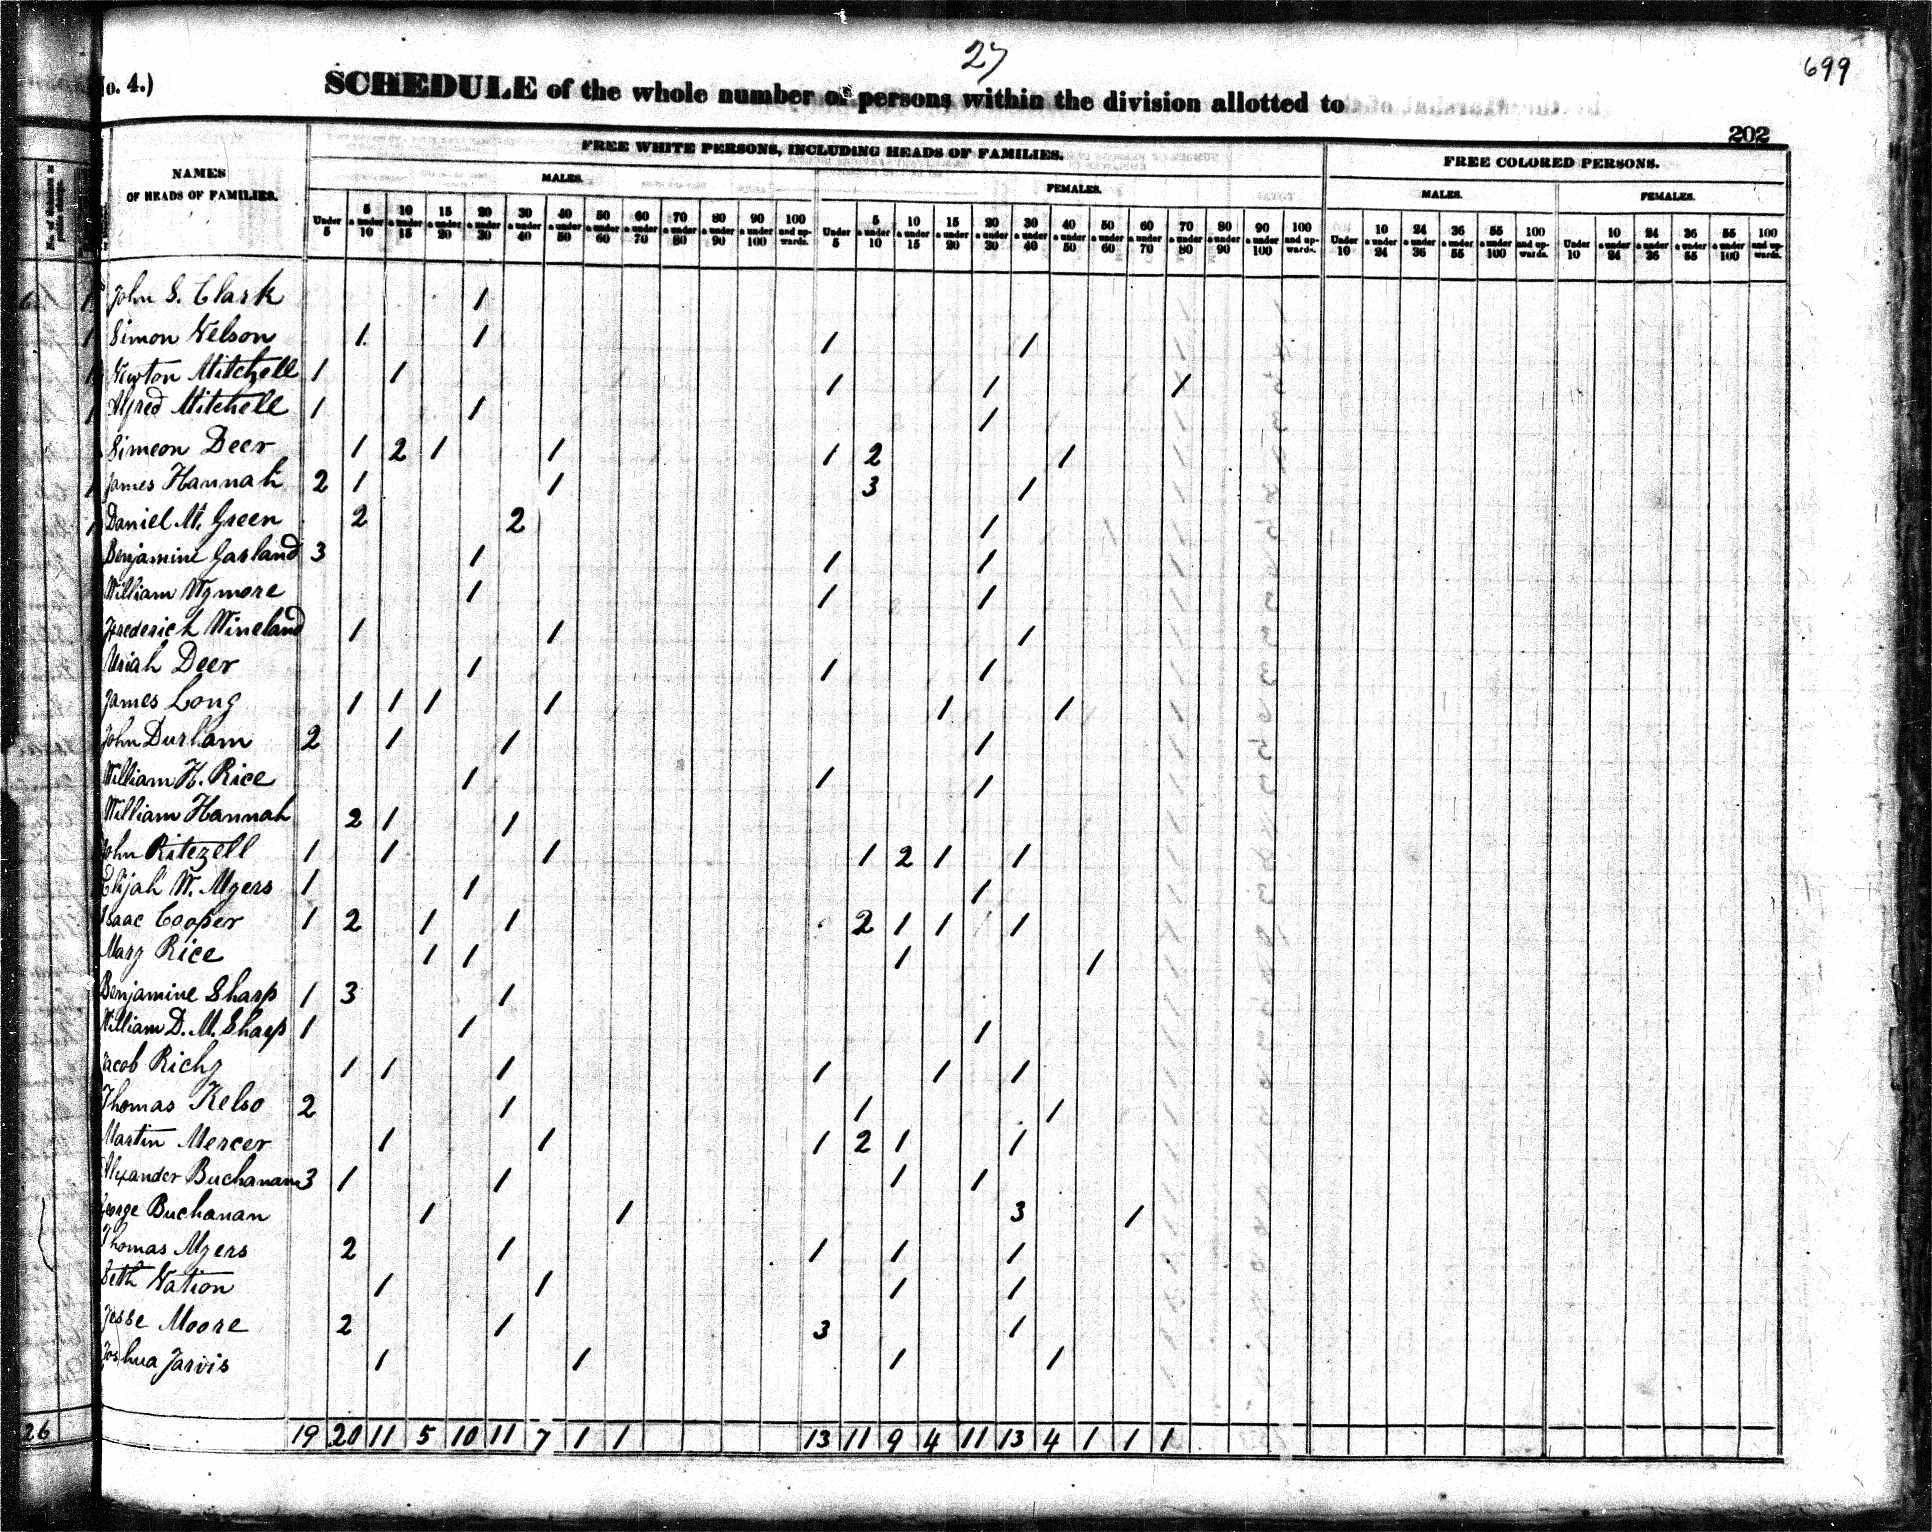 27
699
o. 4.) SCHEDULE of the whole number of persons within the division allotted to
202
NAMES OF HEADS OF FAMILIES.
FREE WHITE PERSONS, INCLUDING HEADS OF FAMILIES.
FREE COLORED PERSONS.
MALES. FEMALES. MALES. FEMALES.
Under 5 | 5 & under 10 | 10 & under 15 | 15 & under 20 | 20 & under 30 | 30 & under 40 | 40 & under 50 | 50 & under 60 | 60 & under 70 | 70 & under 80 | 80 & under 90 | 90 & under 100 | 100 and up-wards. | Under 5 | 5 & under 10 | 10 & under 15 | 15 & under 20 | 20 & under 30 | 30 & under 40 | 40 & under 50 | 50 & under 60 | 60 & under 70 | 70 & under 80 | 80 & under 90 | 90 & under 100 | 100 and up-wards. | Under 10 | 10 & under 24 | 24 & under 36 | 36 & under 55 | 55 & under 100 | 100 and up-wards. | Under 10 | 10 & under 24 | 24 & under 36 | 36 & under 55 | 55 & under 100 | 100 and up-wards.
John S. Clark 1
Simon Nelson 1 1 1 1
Newton Mitchell 1 1 1 1 1
Alfred Mitchell 1 1 1
Simeon Deer 1 2 1 1 1 2 1
James Hannah 2 1 1 3 1
Daniel M. Green 2 2 1
Benjamine Garland 3 1 1 1
William Wymore 1 1 1
Frederick Wineland 1 1 1
Uriah Deer 1 1 1
James Long 1 1 1 1 1 1
John Durham 2 1 1 1
William H. Rice 1 1 1
William Hannah 2 1 1
John Ritezell 1 1 1 1 2 1 1
Elijah W. Myers 1 1 1
Isaac Cooper 1 2 1 1 2 1 1 1
Mary Rice 1 1 1 1
Benjamine Sharp 1 3 1
William D. M. Sharp 1 1 1
Jacob Richy 1 1 1 1 1 1
Thomas Kelso 2 1 1 1
Martin Mercer 1 1 1 2 1 1
Alexander Buchanan 3 1 1 1 1
George Buchanan 1 1 3 1
Thomas Myers 2 1 1 1 1
Seth Nation 1 1 1 1
Jesse Moore 2 1 3 1
Joshua Jarvis 1 1 1 1
26 19 20 11 5 10 11 7 1 1 13 11 9 4 11 13 4 1 1 1